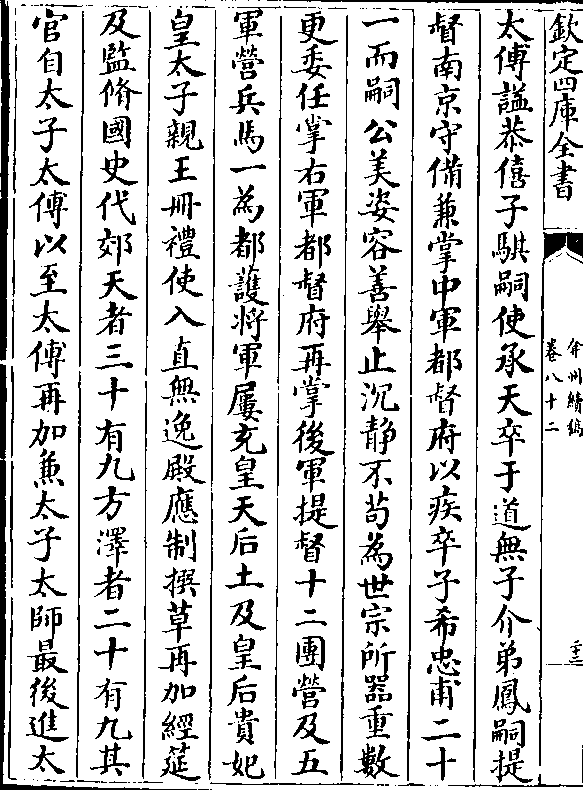 欽定四庫全書
弇州續稿
卷八十二
主
太傅謚恭僖子騏嗣使承天卒于道無子介弟鳳嗣提
督南京守備兼掌中軍都督府以疾卒子希忠甫二十
一而嗣公美姿容善舉止沉静不苟為世宗所器重數
更委任掌右軍都督府再掌後軍提督十二團營及五
軍營兵馬一為都護將軍屢充皇天后土及皇后貴妃
皇太子親王冊禮使入直無逸殿應制撰草再加經筵
及監脩國史代郊天者三十有九方澤者二十有九其
官自太子太傅以至太傅再加兼太子太師最後進太